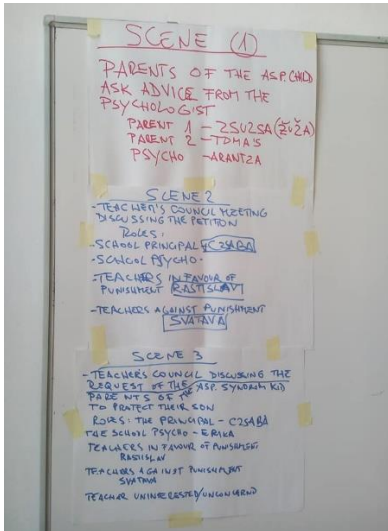 SCENE (1)
PARENTS OF THE ASP. CHILD
ASK ADVICE FROM THE
PSYCHOLOGIST
PARENT 1 - ZSUZSA (ŽUŽA)
PARENT 2 - TOMA'S
PSYCHO - ARANTZA
SCENE 2
- TEACHER'S COUNCIL MEETING
DISCUSSING THE PETITION
ROLES:
- SCHOOL PRINCIPAL CSABA
- SCHOOL PSYCHO -
- TEACHERS IN FAVOUR OF
PUNISHMENT RASTISLAV
- TEACHERS AGAINST PUNISHMENT
SVATAVA
SCENE 3
- TEACHERS COUNCIL DISCUSSING THE
REQUEST OF THE ASP. SYNDROM KID
PARENTS OF THE
TO PROTECT THEIR SON
ROLES: THE PRINCIPAL - CSABA
THE SCHOOL PSYCHO - ERIKA
TEACHERS IN FAVOUR OF PUNISHMENT:
RASTISLAV
TEACHERS AGAINST PUNISHMENT
SVATAVA
TEACHER UNINTERESTED/UNCONCERND